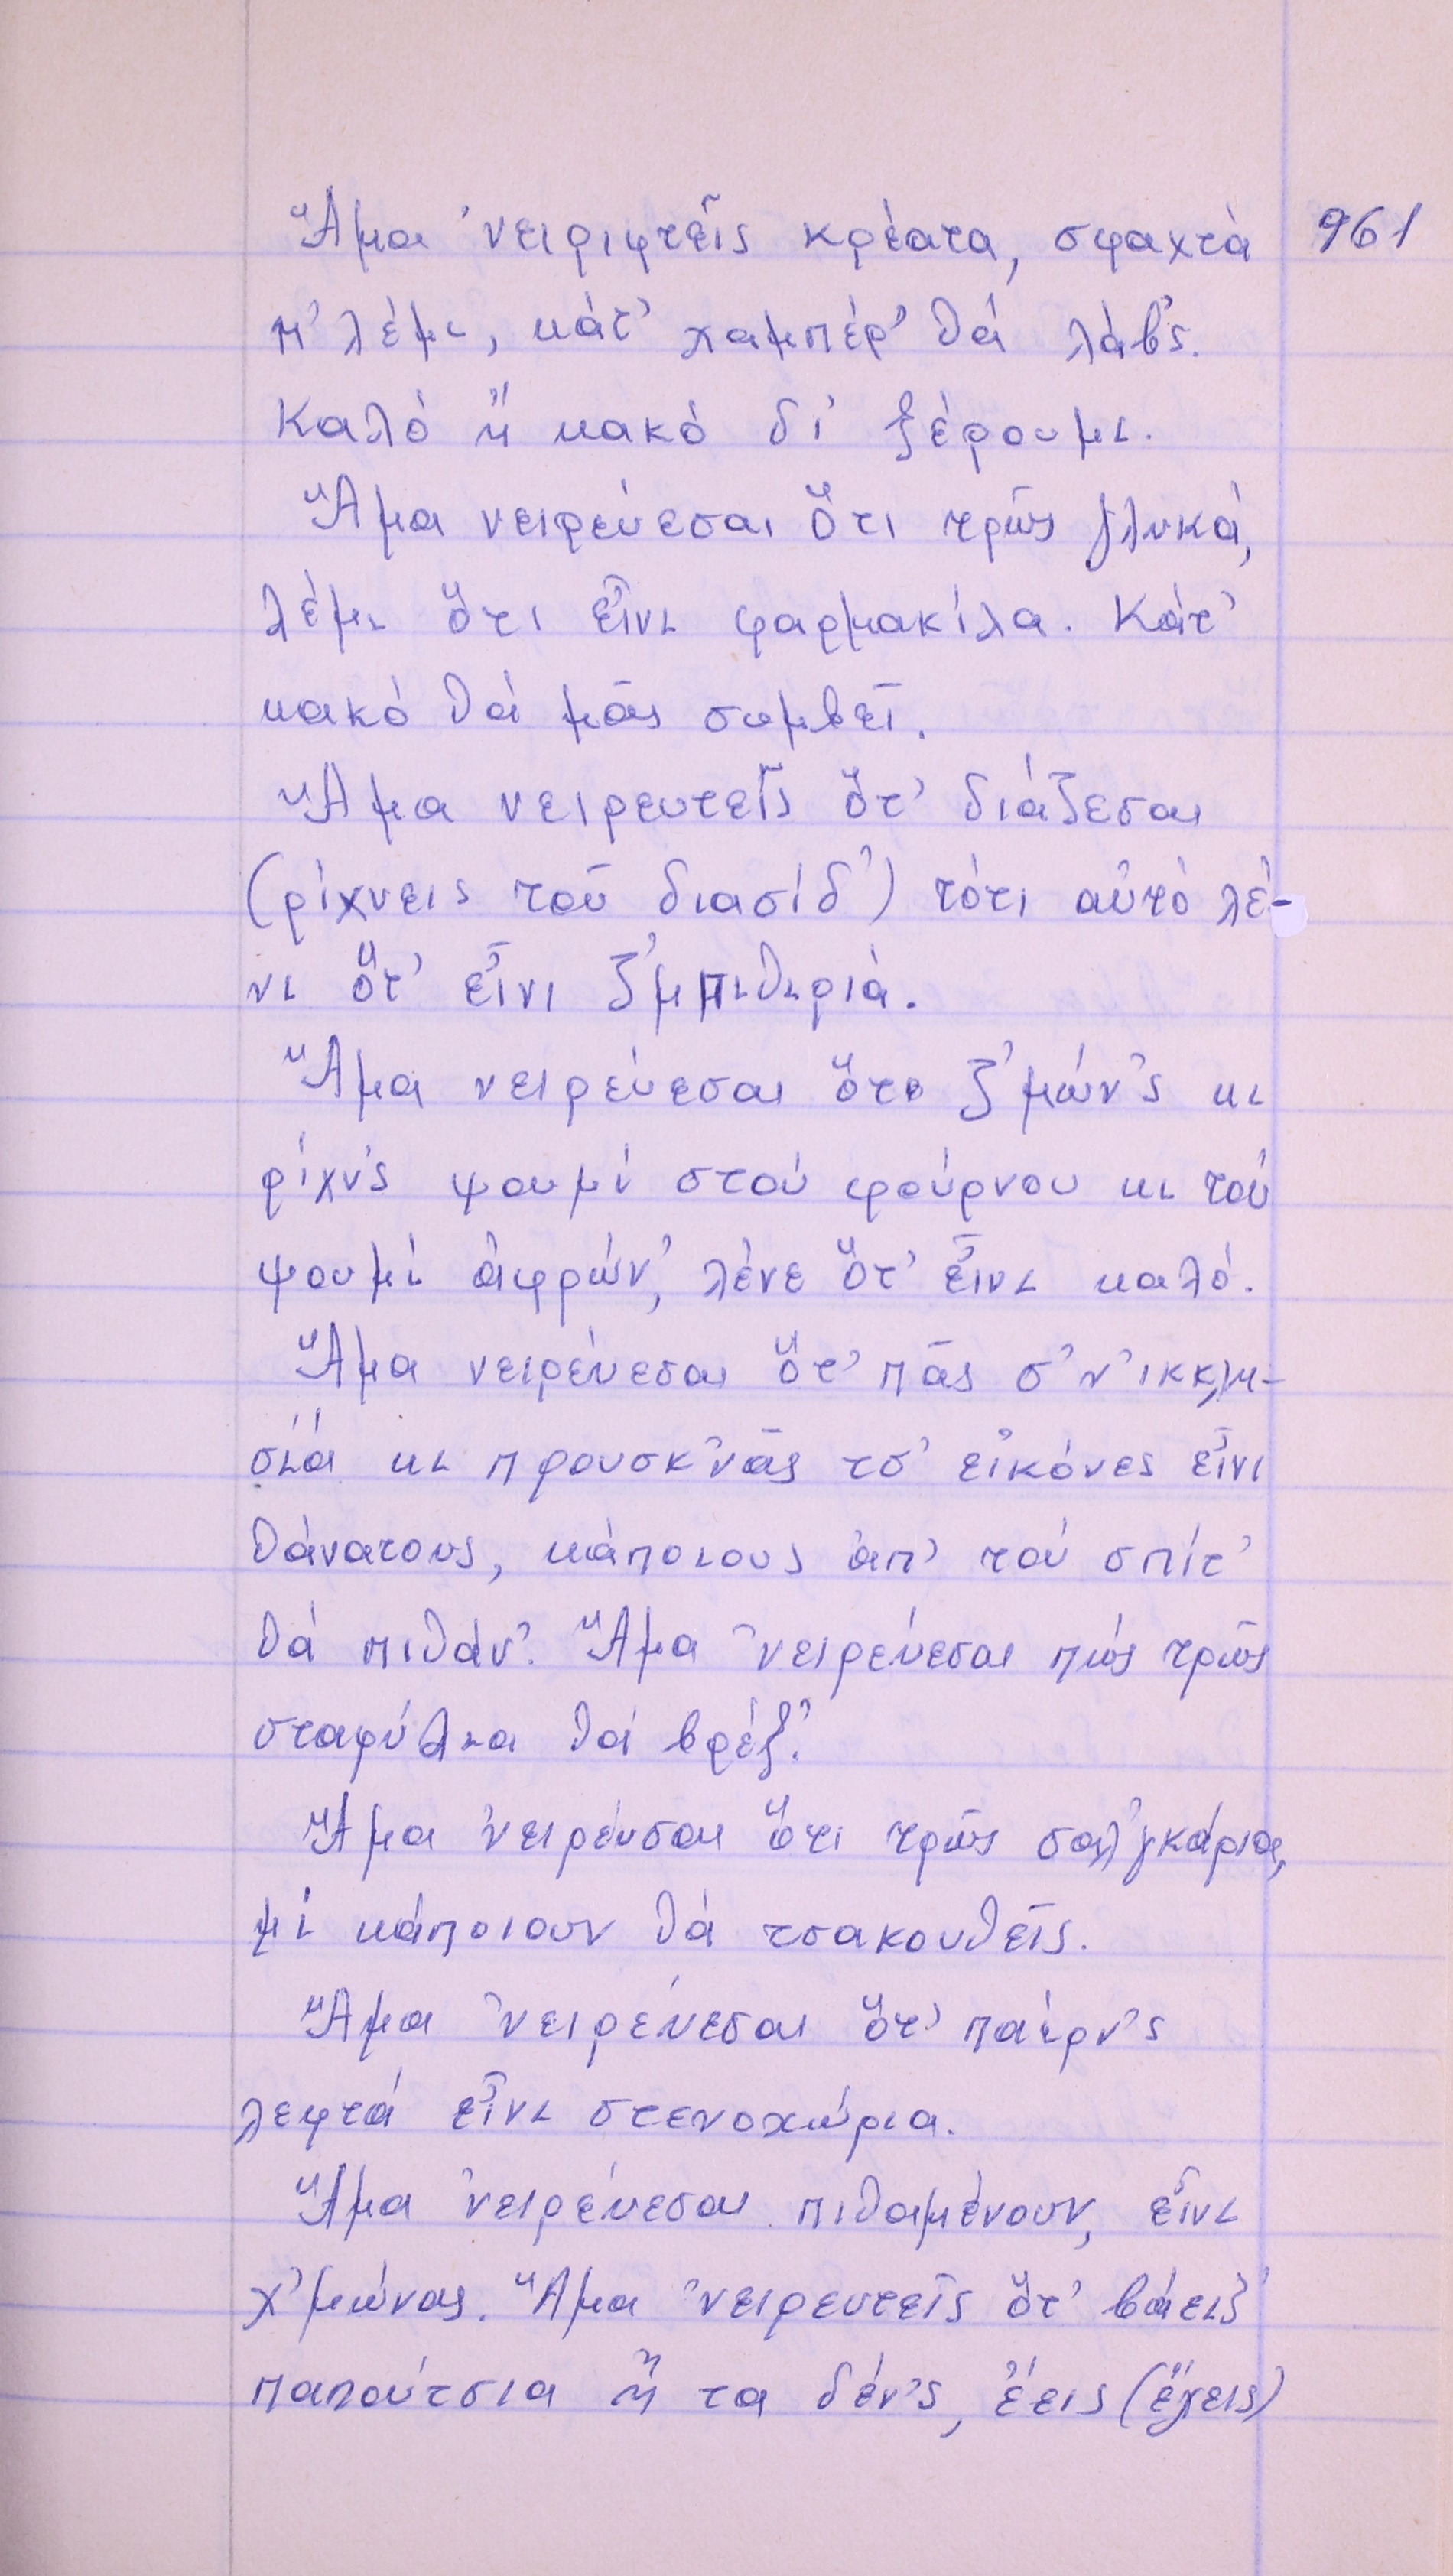 961
Ἅμα ᾿νειριφτεῖς κρέατα, σφαχτὰ
π᾿ λέμι, κάτ᾿ χαμπέρ᾿ θά λάβ᾿ς.
Καλό ἤ κακό δέ ξέρουμι.
Ἅμα νειρεύεσαι ὅτι τρῶς γλυκά,
λέμι ὅτι εἶνι φαρμακίλα. Κάτ᾿
κακό θά μᾶς συμβεῖ.
Ἅμα νειρευτεῖς ὅτ᾿ διάζεσαι
(ρίχνεις τοῦ διασίδ᾿) τότι αὐτό λέ-
νι ὅτ᾿ εἶνι ζ᾿μπιθιριά.
Ἅμα νειρεύεσαι ὅτι ζ᾿μών᾿ς κι
ρίχν᾿ς ψουμί στού φούρνου κι τού
ψουμί ἀφρών᾿, λένε ὅτ᾿ εἶνι καλό.
Ἅμα νειρεύεσαι ὅτ᾿ πᾶς σ᾿ ν᾿ ικκλη-
σιά κι προυσκ᾿νᾶς τσ᾿ εἰκόνες εἶνι
θάνατους, κάποιους ἀπ᾿ τού σπίτ᾿
θά πιθάν᾿. Ἅμα ᾿νειρεύεσαι πώς τρῶς
σταφύλια θά βρέξ᾿.
Ἅμα ᾿νειρεύσαι ὅτι τρῶς σαλ᾿γκάρια,
μί κάποιουν θά τσακουθεῖς.
Ἅμα ᾿νειρεύεσαι ὅτ᾿ παίρν᾿ς
λεφτά εἶνι στενοχώρια.
Ἅμα ᾿νειρεύεσαι πιθαμένουν, εἶνι
χ᾿μώνας. Ἅμα ᾿νειρευτεῖς ὅτ᾿ βάεις
παπούτσια ἤ τα δέν᾿ς, ἔεις (ἔχεις)